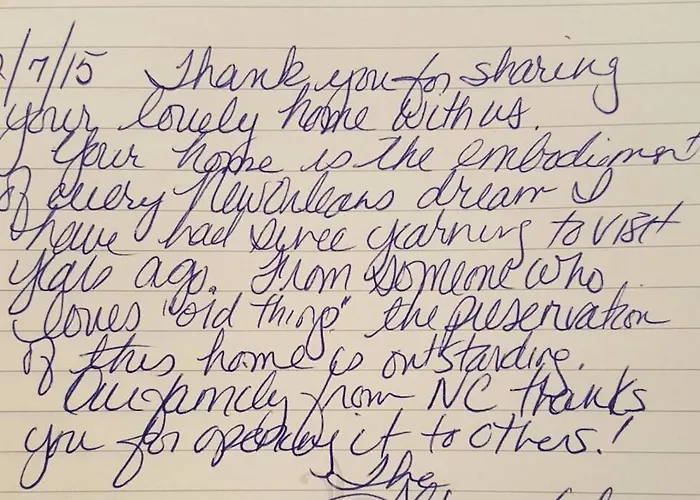 /7/15 Thank you for sharing
your lovely home with us.
Your home is the embodiment
of every New Orleans dream I
have had since yearning to visit
years ago. From someone who
loves "old things" the preservation
of this home is outstanding.
Our family from NC thanks
you for opening it to others!
The